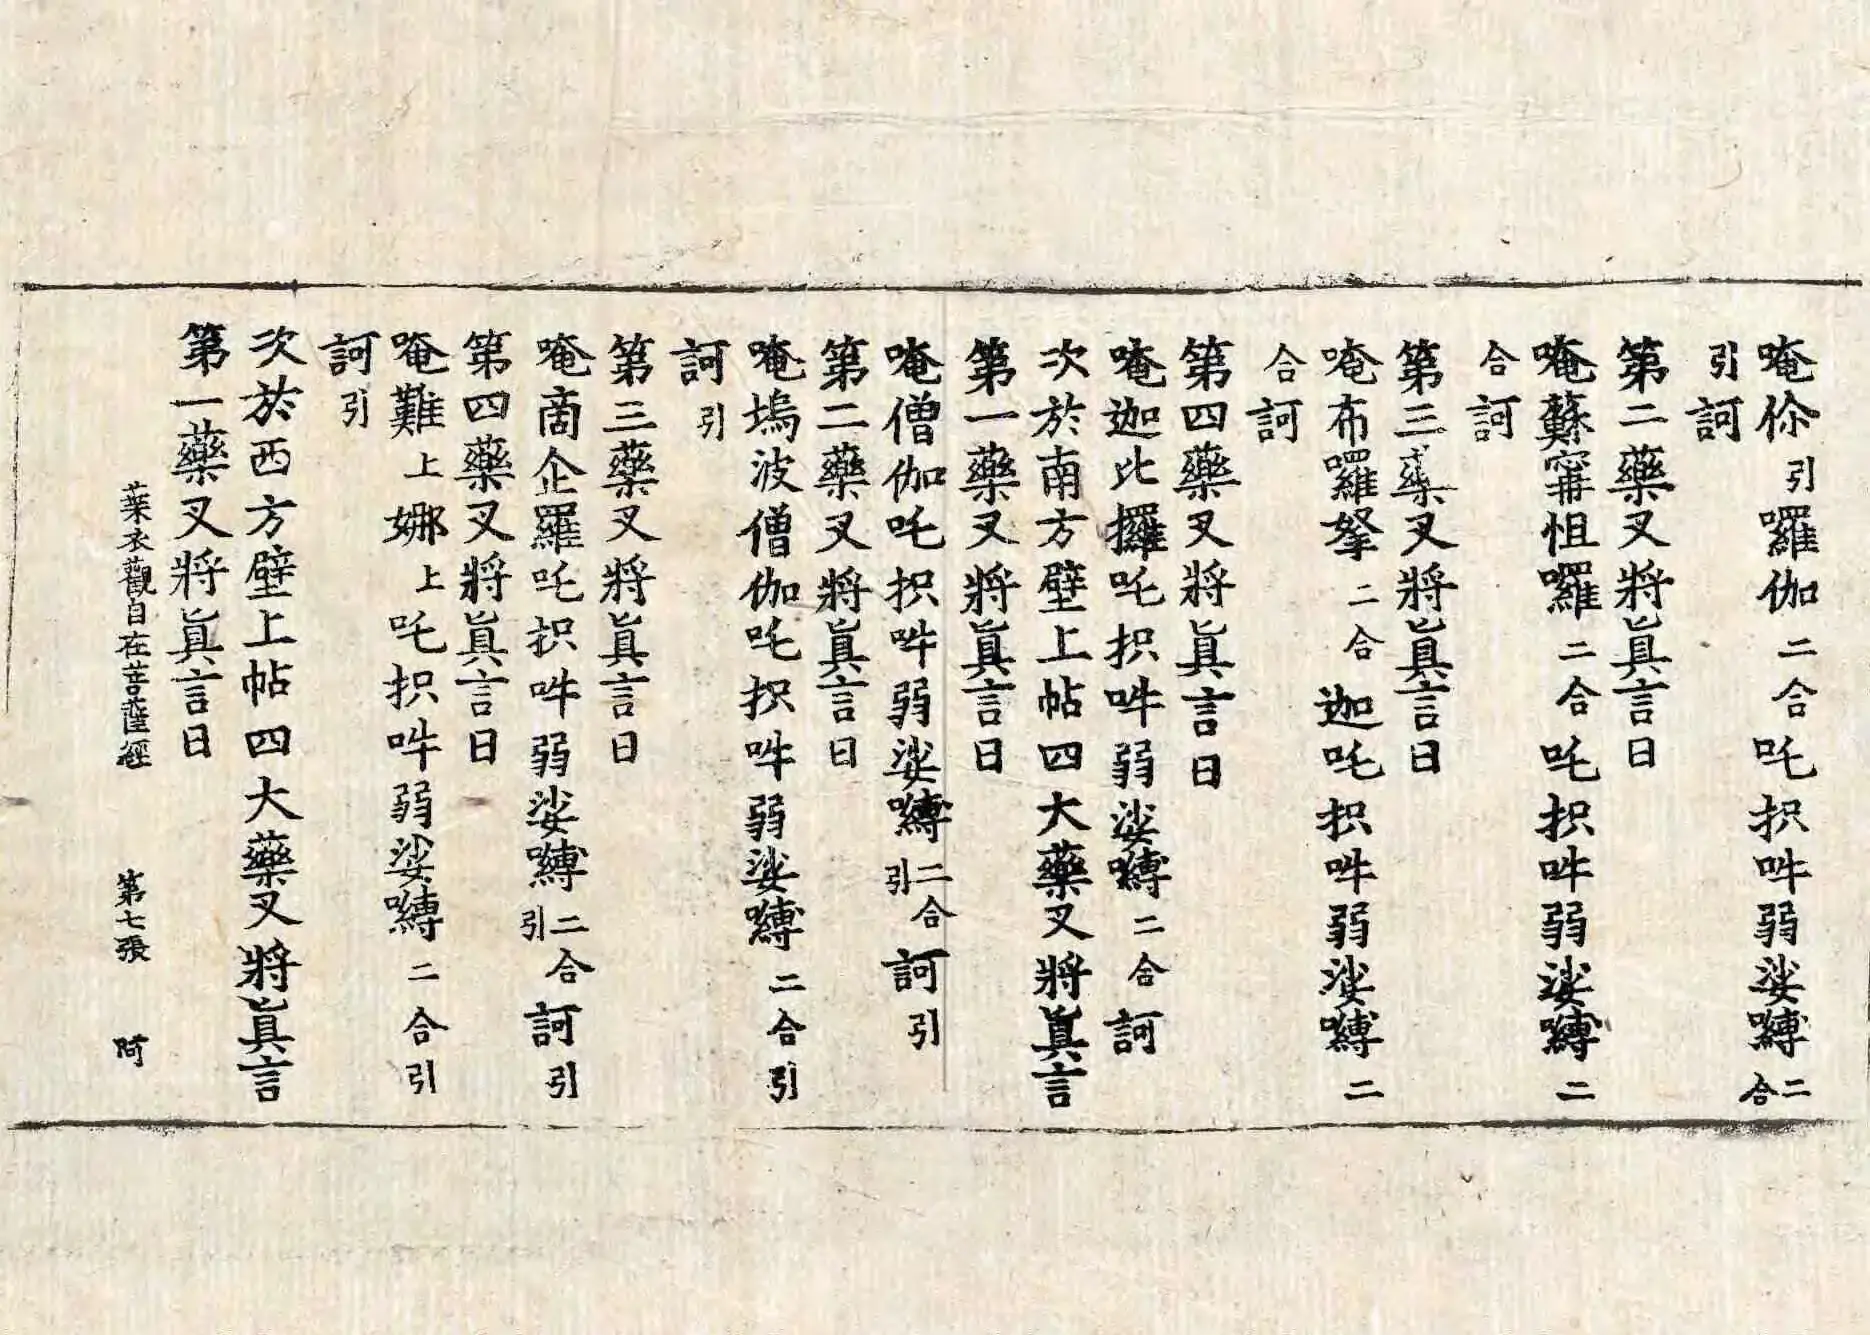 唵伱引囉伽二合吒抧吽弱娑嚩二合
引訶
第二藥叉將眞言曰
唵蘇甯怚囉二合吒抧吽弱娑嚩二
合訶
第三藥叉將眞言曰
唵布囉拏二合迦吒抧吽弱娑嚩二
合訶
第四藥叉將眞言曰
唵迦比攞吒抧吽弱娑嚩二合訶
次於南方壁上帖四大藥叉將眞言
第一藥叉將眞言曰
唵僧伽吒抧吽弱娑嚩二合引訶引
第二藥叉將眞言曰
唵塢波僧伽吒抧吽弱娑嚩二合引
訶引
第三藥叉將眞言曰
唵啇企羅吒抧吽弱娑嚩二合引訶引
第四藥叉將眞言曰
唵難上娜上吒抧吽弱娑嚩二合引
訶引
次於西方壁上帖四大藥叉將眞言
第一藥叉將眞言曰
葉衣觀自在菩薩經 第七張 阿